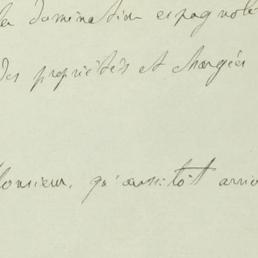 la domination espagnole
des propriétés et chargées
Monsieur, qu'aussitôt arrivé